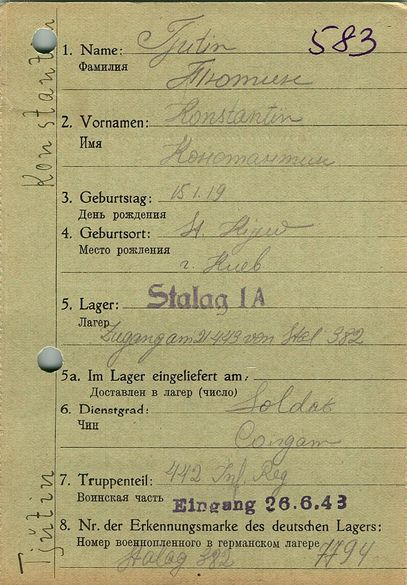 583
1. Name: Tjutin
Фамилия
Тютин
2. Vornamen: Konstantin
Имя
Константин
3. Geburtstag: 15.1.19
День рождения
4. Geburtsort: St. Kijew
Место рождения
г. Киев
5. Lager: Stalag IA
Лагер
Zugang am 21.4.43 von Stal. 382
5a. Im Lager eingeliefert am:
Доставлен в лагер (число)
6. Dienstgrad: Soldat
Чин
Солдат
7. Truppenteil: 442 Inf. Reg
Воинская часть
Eingang 26.6.43
8. Nr. der Erkennungsmarke des deutschen Lagers:
Номер военнопленного в германском лагере
Stalag 382 7794
Konstantin
Tjutin